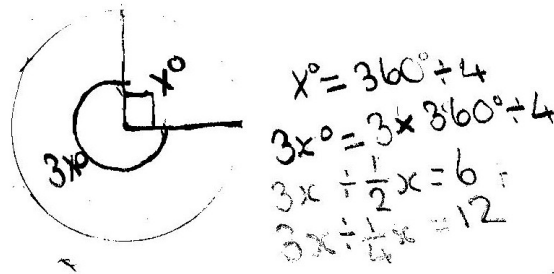 x°
3x°
x° = 360° ÷ 4
3x° = 3 × 360° ÷ 4
3x ÷ 1/2 x = 6
3x ÷ 1/4 x = 12